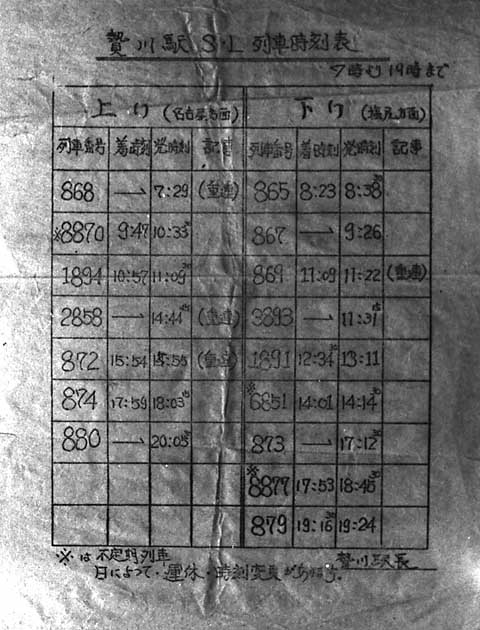 贄川駅 S・L 列車時刻表
7時より19時まで
上り (名古屋方面) 下り (塩尻方面)
列車番号 着時刻 発時刻 記事 列車番号 着時刻 発時刻 記事
868 → 7:29 (重連) 865 8:23 8:38 30
※8870 9:47 10:33 867 → 9:26
1894 10:57 11:09 869 11:09 11:22 (重連)
2858 → 14:44 (重連) 3893 → 11:31 15
872 15:54 (重連) 1891 12:34 30 13:11
874 17:59 18:03 15 ※6851 14:01 14:14 30
880 → 20:05 873 → 17:12 30
※8877 17:53 18:46 30
879 19:16 30 19:24
※は不定期列車 贄川駅長
日によって・運休・時刻変更があります。